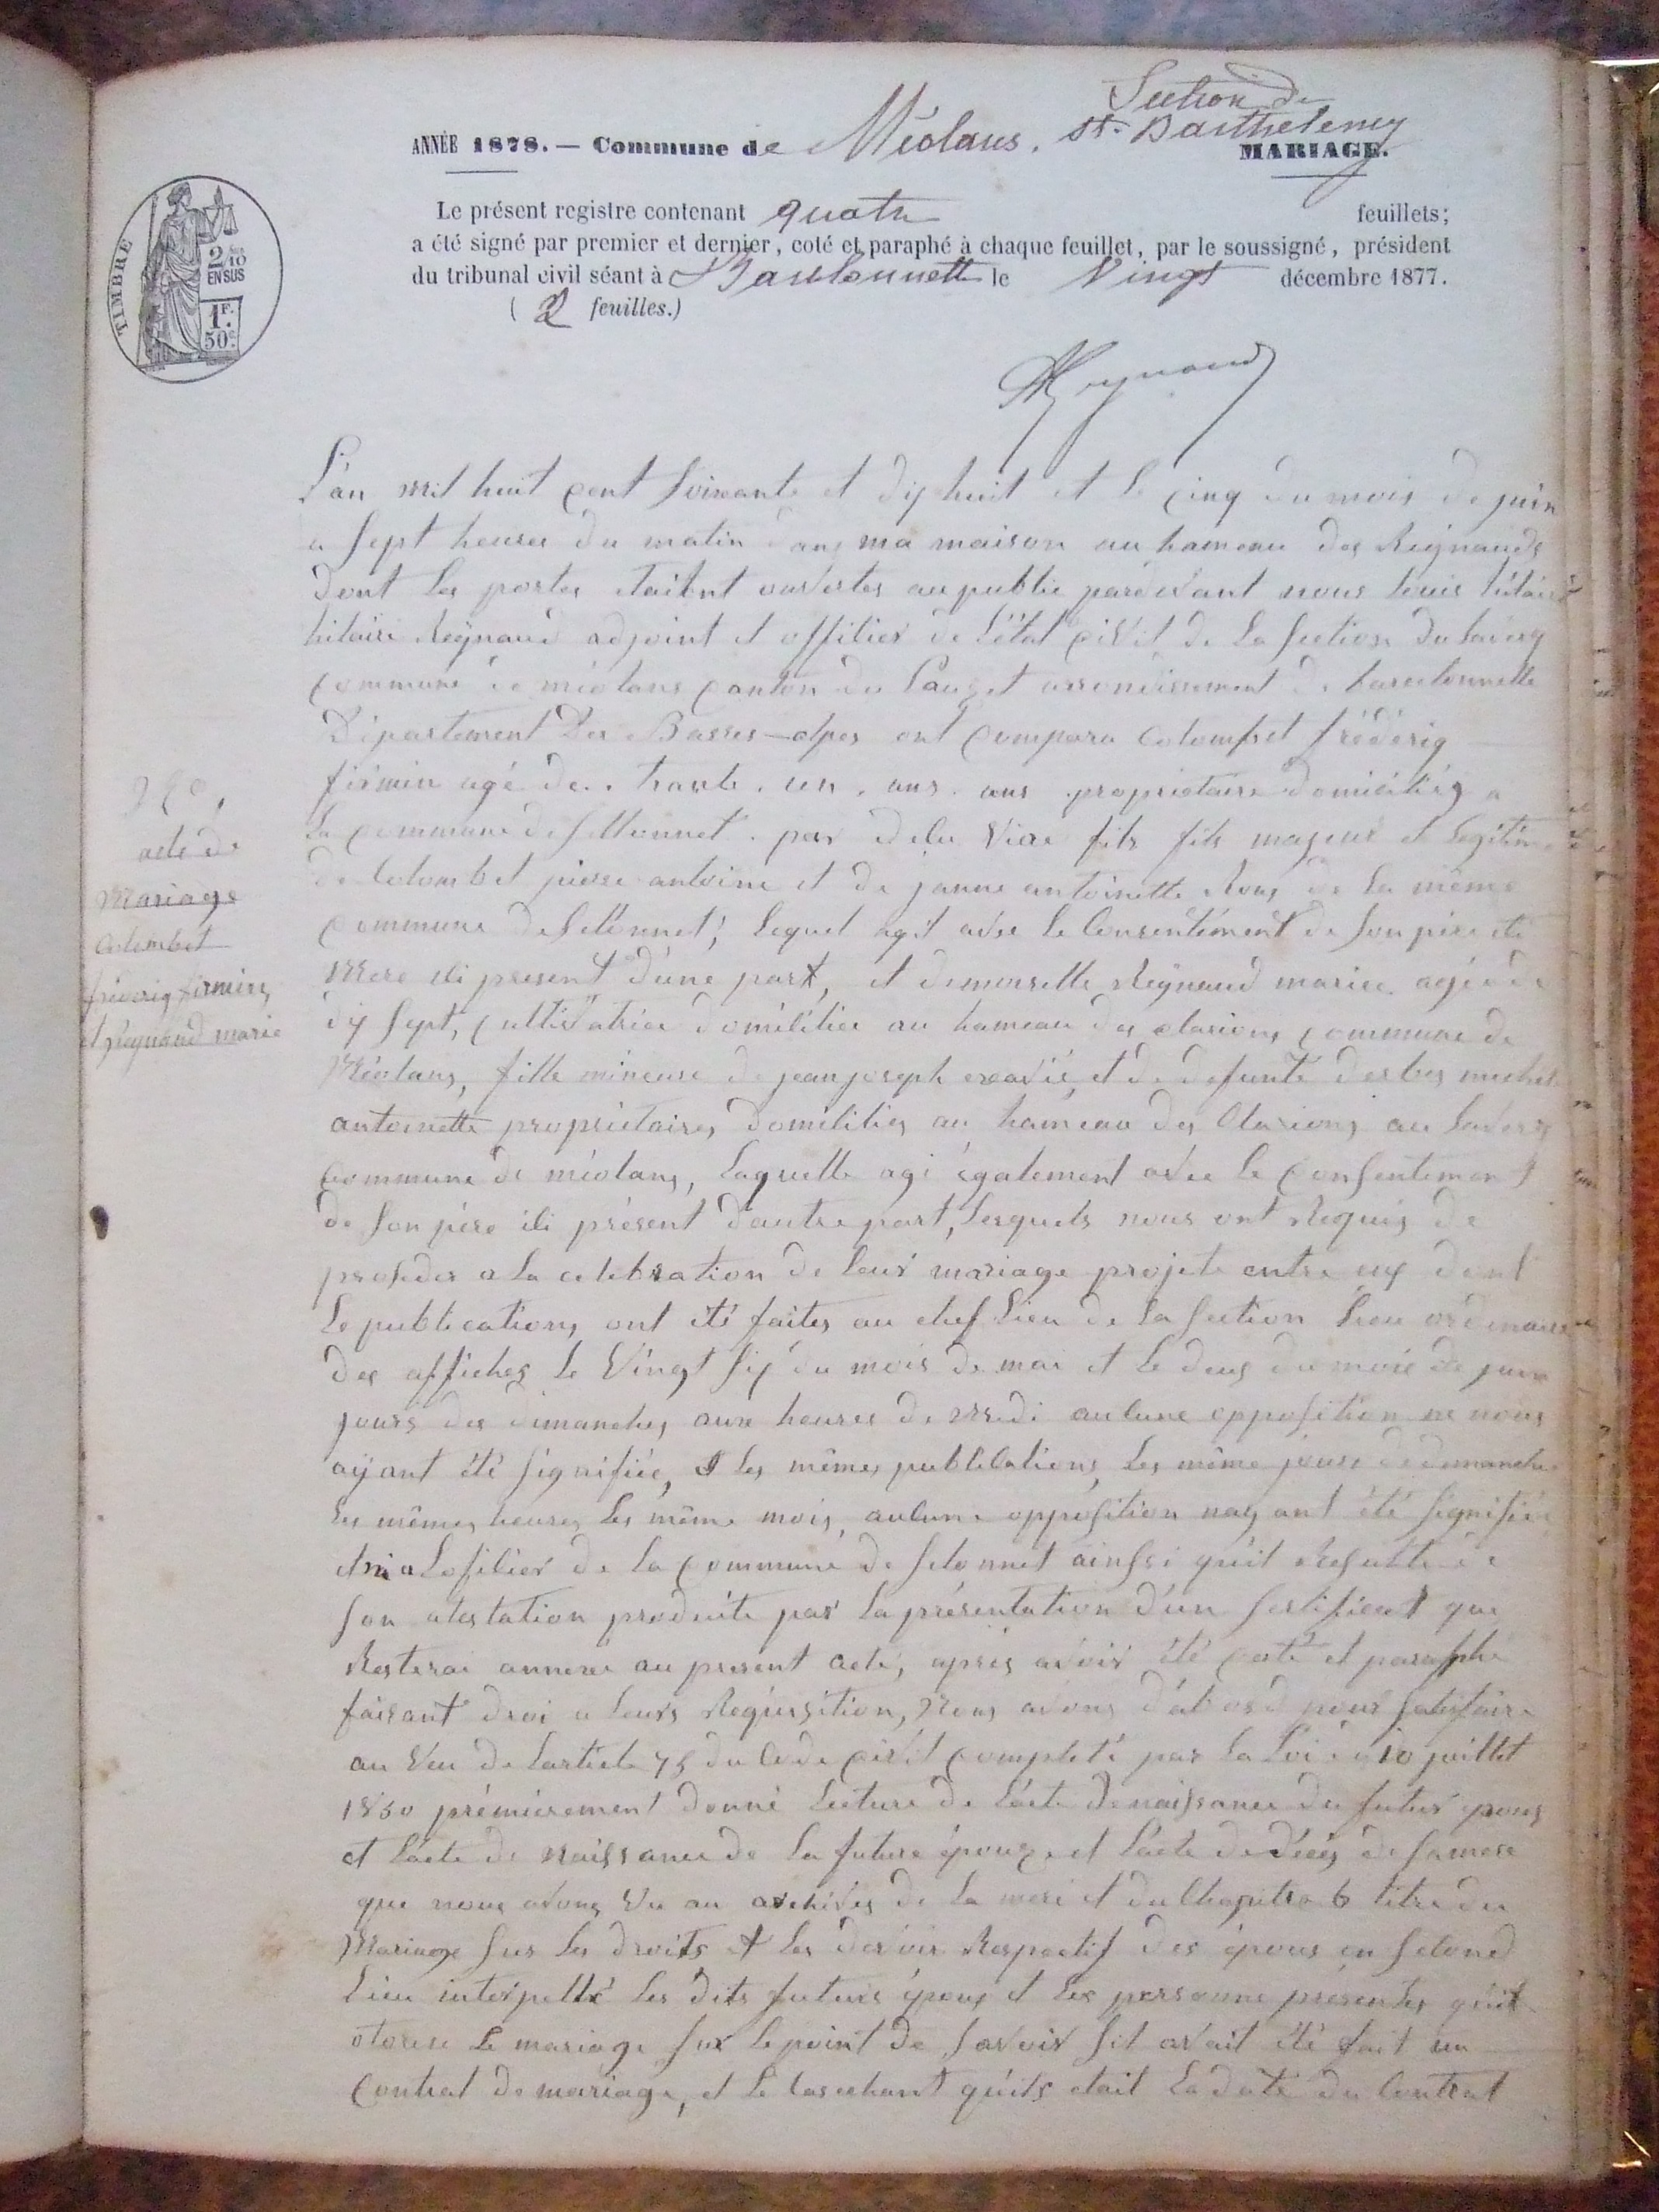 Section de
ANNÉE 1878. — Commune de Méolans. St. Barthelemy
MARIAGE.
TIMBRE
2/10
EN SUS
1F.
50c.
Le présent registre contenant quatre feuillets;
a été signé par premier et dernier, coté et paraphé à chaque feuillet, par le soussigné, président
du tribunal civil séant à Barcelonnette le Vingt décembre 1877.
( 2 feuilles.)
Reynaud
L'an mil huit cent soixante et dix huit et le cinq du mois de juin
a sept heures du matin dans ma maison au hameau des Reignauds
dont les portes etaient ouvertes au public pardevant nous louis
hilaire Reÿnaud adjoint et offitier de l'état civil de la section du laverq
commune de méolans canton du Lauzet arrondissement de barcelonnette
Département Des Basses-alpes ont comparu colombet fréderig
firmin agé de . trante . un . ans . ans . propriétaire domicilié a
la commune de sellonnet . par fils fils majeur et legitime
de Colombet pierre antoine et de janne antoinette Roux de la même
commune de selonnet; lequel agit avec le Consentement de son père et
mere ici present d'une part, et demoiselle Reynaud marie agée de
dix sept, cultivatrice domicilie au hameau des clarions commune de
Méolans, fille mineure de jean joseph xavié et de defunte derbes
antoinette propriétaires domiciliés au hameau des Clarions au laverq
Commune de méolans, laquelle agi également avec le Consentement
de son père ici présent d'autre part, lesquels nous ont Requis de
proseder a la celebration de leur mariage projeté entre eux dont
le publications ont été faites au chef lieu de la section lieu ordinaire
des affiches le Vingt six du mois de mai et le deux du mois de juin
jours des dimanches aux heures de midi aucune opposition ne nous
aÿant été signifiée, et les mêmes publications, les même jours de dimanche
les mêmes heures les même mois, aucune opposition nayant été signifiée
et ni a lofisier de la commune de selonnet ainssi quil Resulte de
son atestation produite par la présentation d'un sertificat que
Resterai annexé au present acte, après avoir été coté et paraphé
faisant droi a leurs Requisition, Nous avons d'abord pour satisfaire
au Veu de larticle 75 du Code civil completé par la loi du 10 juillet
1850 prémièrement donné lecture de l'acte de naissance du futur epoux
et l'acte de naissance de la future épouze et l'acte de décés de sa mere
que nous avons Vu au archives de la meri et du Chapitre 6 titre du
Mariage sur les droits et les devoir Respectif des époux en second
lieu interpellé les dits futurs époux et les personne présentes quit
otorise le mariage sur le point de savoir sil avait été fait un
Contrat de mariage, et le cas echant qu'ils etait la date du Contrat
acte de
Mariage
Colombet
fréderig firmin,
et Reynaud marie